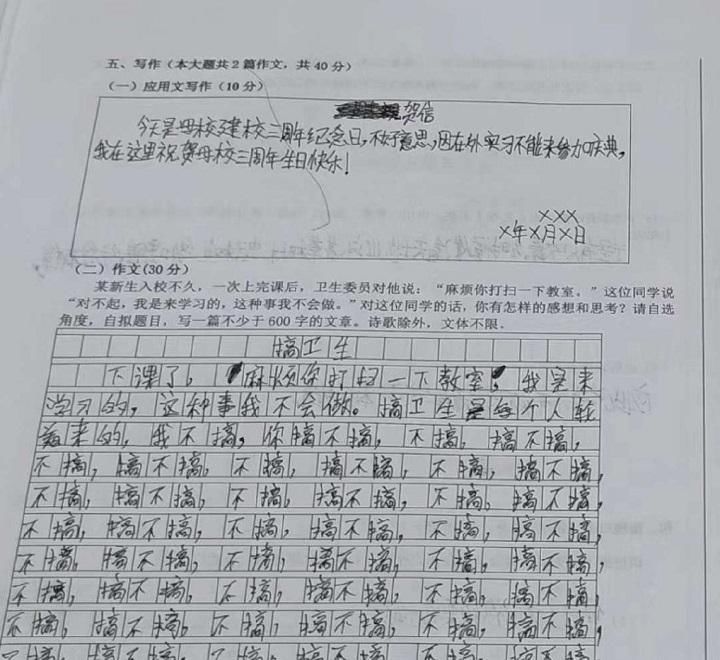 五、写作（本大题共2篇作文，共40分）
（一）应用文写作（10分）
贺信
今天是母校建校三周年纪念日，不好意思，因在外实习不能来参加庆典，
我在这里祝贺母校三周年生日快乐！
XXX
X年X月X日
（二）作文（30分）
某新生入校不久，一次上完课后，卫生委员对他说：“麻烦你打扫一下教室。”这位同学说
“对不起，我是来学习的，这种事我不会做。”对这位同学的话，你有怎样的感想和思考？请自选
角度，自拟题目，写一篇不少于600字的文章。诗歌除外，文体不限。
搞卫生
下课了。麻烦你打扫一下教室，我是来
学习的，这种事我不会做。搞卫生是每个人轮
着来的，我不搞，你搞不搞，不搞，搞不搞，
不搞，搞不搞，不搞，搞不搞，不搞，搞不搞，
不搞，搞不搞，不搞，搞不搞，不搞，搞不搞，
不搞，搞不搞，不搞，搞不搞，不搞，搞不搞，
不搞，搞不搞，不搞，搞不搞，不搞，搞不搞，
不搞，搞不搞，不搞，搞不搞，不搞，搞不搞，
不搞，搞不搞，不搞，搞不搞，不搞，搞不搞，
不搞，搞不搞，不搞，搞不搞，不搞，搞不搞